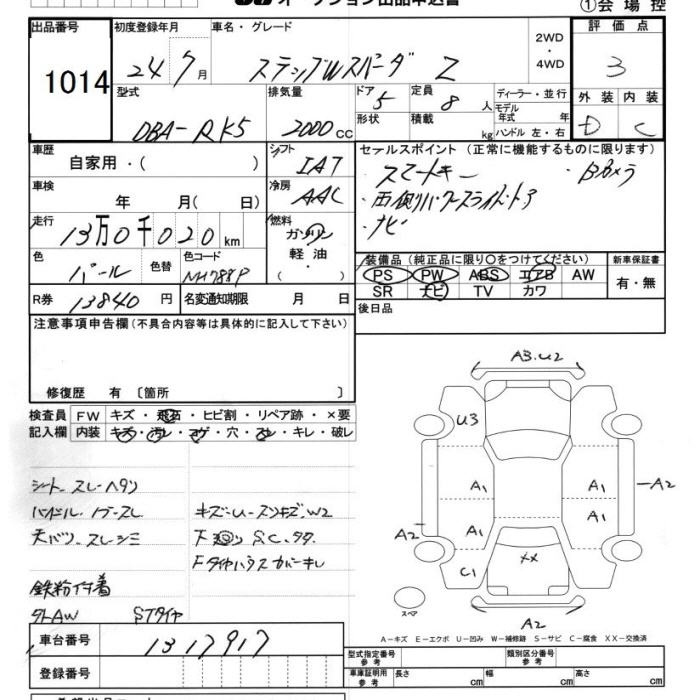 オークション出品申込書 ①会場控
出品番号 初度登録年月 車名・グレード 2WD 評価点
1014 24年7月 ステップWスパーダ Z ・4WD 3
型式 排気量 ドア 定員 ディーラー・並行 外装 内装
DBA-RK5 2000cc 5 8人 モデル年式 年 D C
形状 積載 kg ハンドル 左・右
車歴 自家用・( ) シフト IAT セールスポイント (正常に機能するものに限ります)
・スマートキー ・Bカメラ
車検 年 月( 日) 冷房 AAC ・両側パワースライドドア
・ナビ
走行 13万0千020km 燃料 ガソリン
軽油
色 パール 色替 色コード NH788P 装備品 (純正品に限り○をつけてください) 新車保証書
PS PW ABS エアB AW 有・無
R券 13840円 名変通知期限 月 日 SR ナビ TV カワ
注意事項申告欄(不具合内容等は具体的に記入して下さい) 後日品
修復歴 有 〔箇所 〕
検査員 FW キズ・飛石・ヒビ割・リペア跡・×要
記入欄 内装 キズ・汚レ・コゲ・穴・スレ・キレ・破レ
シート スレ・ヘタリ
ハンドル、ノブ スレ キズ・U・スリキズ、W2
天バリ、スレ・シミ 下回り S.C.タタ
Fタイヤハウスカバーキレ
鉄粉付着
外AW STタイヤ
A3.U2
U3
A1 A1 A2
A1 A1
A2
C1 XX
スペア
A2
A-キズ E-エクボ U-凹み W-補修跡 S-サビ C-腐食 XX-交換済
車台番号 1317917 型式指定番号 参考 類別区分番号 参考
登録番号 車庫証明用 参考 長さ cm 幅 cm 高さ cm